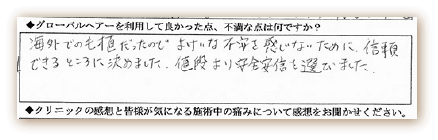 ◆グローバルヘアーを利用して良かった点、不満な点は何ですか?
海外での毛植だったので よけいな不安を感じないために、信頼
できるところに決めました。値段より安全安信を選びました。
◆クリニックの感想と皆様が気になる施術中の痛みについて感想をお聞かせください。